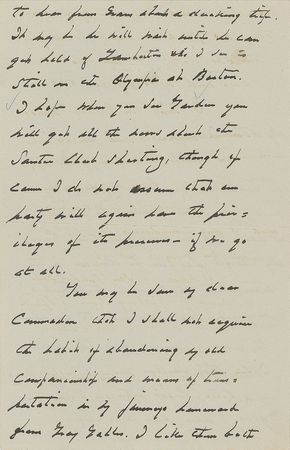 to hear from Evans about a ducking trip.
It may be he will wait until he can
get hold of Lamberton who I see is
still on the Olympia at Boston.
I hope when you see you
will get all the news about the
Santee Club shooting, though of
course I do not assume that our
party will again have the priv-
ileges of its preserves - if we go
at all.
You may be sure my dear
Commodore that I shall not acquire
the habit of abandoning my old
Companionship and means of trans-
portation in my journeys homeward
from Gray Gables. I like them both